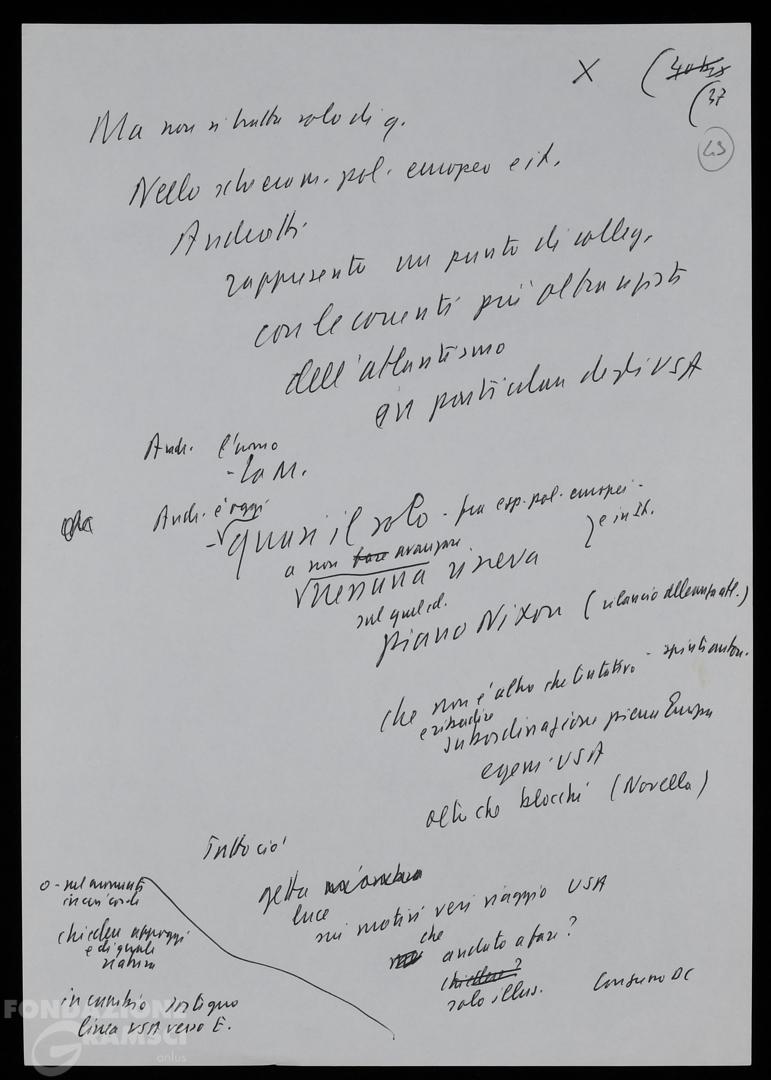 X (40 bis
(37
43
Ma non si tratta solo di q.
Nello schieram. pol. europeo e it.
Andreotti
rappresenta un punto di colleg.
con le correnti più oltranziste
dell'atlantismo
e in particolare degli USA
Andr. l'uomo
- La M.
Andr. è oggi
- quasi il solo - fra esp. pol. europei -
e in It.
a non fare avanzare
nessuna riserva
sul qued.
piano Nixon (rilancio alleanza atl.)
che non è altro che tentativo -
e ribadire
subordinazione piena Europa
egem. USA
altro che blocchi (Novella)
Tutto ciò
getta
luce
sui motivi veri viaggio USA
che andato a fare?
chiedere?
solo illus. Consumo DC
o - nel momento
in cui
chiedere appoggi
e di quale
natura
in cambio sostegno
linea USA verso E.
FONDAZIONE
GRAMSCI
onlus